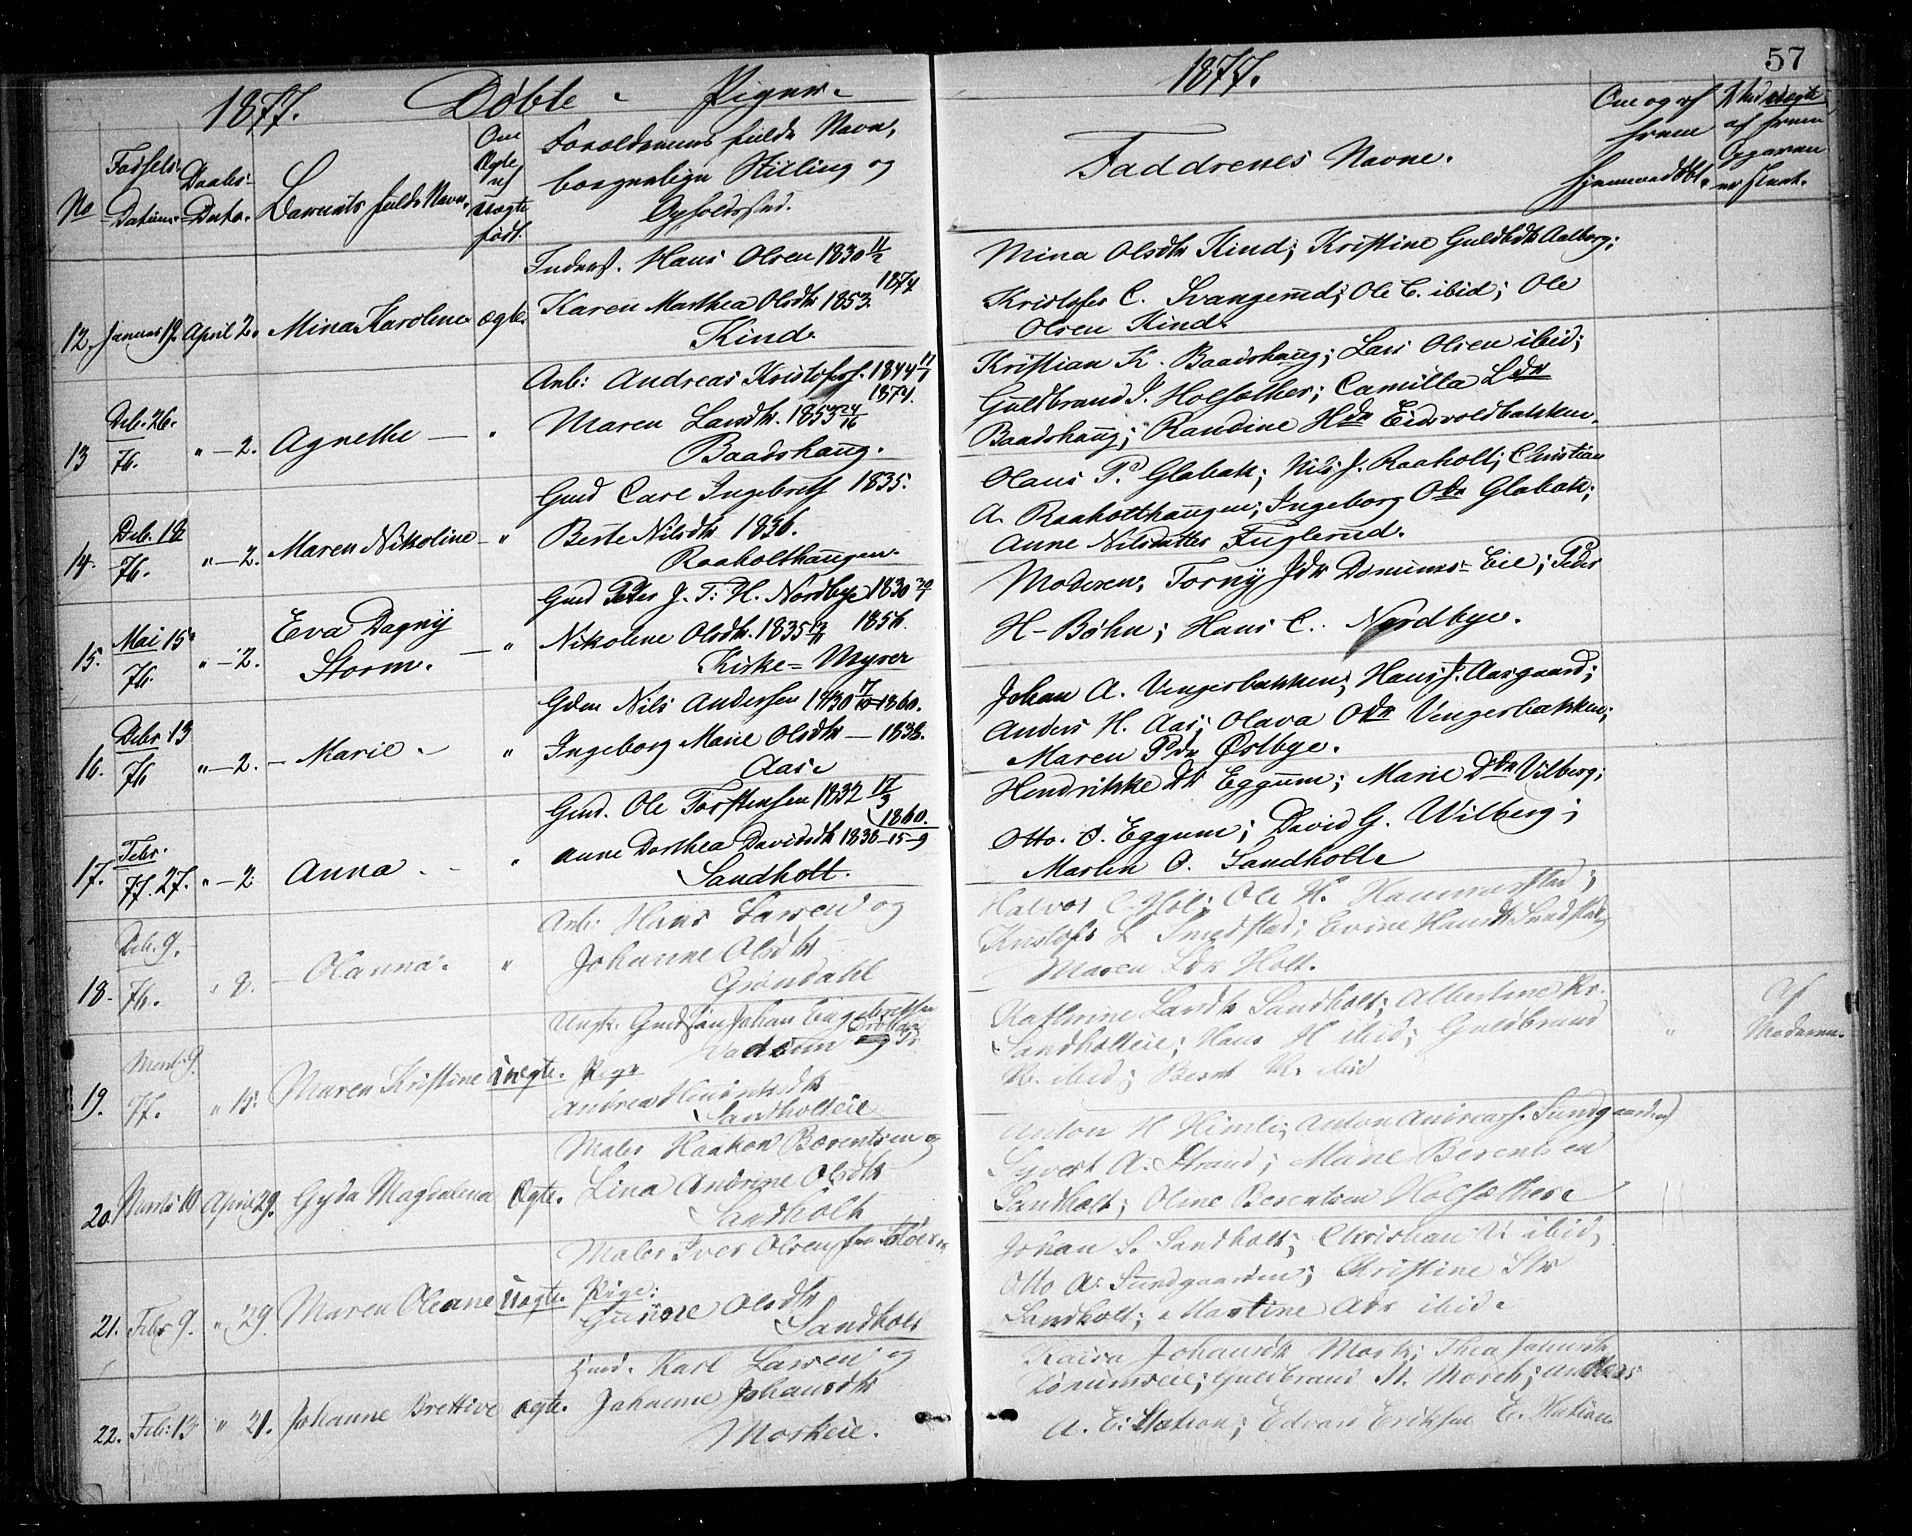 57
1877. Døbte Piger. 1877.
No
Fødsels-
Datum.
Daabs-
Dato.
Barnets fulde Navn.
Om
Ægte
el
uægte
født.
Forældrenes fulde Navn,
borgerlige Stilling og
Opholdssted.
Faddrenes Navne.
Om og af
hvem
hjemmedøbt.
af hvem
Opgaven
er skeet.
12. Januar 19. April 2. Mina Karoline ægte.
Inderst. Hans Olsen 1830 11/2
1877
Karen Marthea Olsdtr 1853.
Kind.
Mina Olsdtr Kind; Kristine Guldbdtr Aalborg;
Kristofer C. Svangerud; Ole C. ibid; Ole
Olsen Kind.
13 Deb. 26. 76. " — 2. Agnethe — "
Arb: Andreas Kristofers. 1844 11/1
1874.
Maren Larsdtr. 1853
Baadshaug.
Kristian K. Baadshaug; Lars Olsen ibid;
Guldbrand J. Holsæther; Camilla Ldtr
Baadshaug; Randine Hdtr Eidsvoldbakken.
14. Deb. 18 76. " — 2. Maren Nikoline — "
Gmd Carl Ingebrets 1835.
Berte Nilsdtr 1836.
Raaholthaugen.
Olaus P. Glabak; Nils J. Raaholt; Christian
A. Raaholthaugen; Ingeborg Odtr Glabak;
Anne Nilsdatter Fuglerud.
15. Mai 15 76. " — 2. Eva Dagny
Storm. — "
Gmd Peter J. T. H. Nordbye 1830
Nikoline Olsdtr. 1835 1856.
Kirke = Myrer
Moderen; Torny Jdtr Dønnums = Eie; Peder
H—Bøhn; Hans C. Nordbye.
16. Debr 13 76 " — 2. — Marie — "
Gdm Nils Andersen 1830 1860.
Ingeborg Marie Olsdtr — 1838.
Aas
Johan A. Vengerbakken; Hans J. Aasgaard;
Anders H. Aas; Olava Odtr Vengerbakken;
Maren Pdtr Østbye.
17. Febr. 77. 27. " — 2 Anna. "
Gmd. Ole Torstensen 1832 17/3
1860.
Anne Dorthea Davidsdtr 1838—15—9
Sandholt.
Hendrikke Eggum; Marie Ddtr Vilberg;
Otto. O. Eggum; David G. Wilberg;
Martin O. Sandholt
18. Deb. 9. 76. " 8. — Olanna. "
Arb: Hans Larsen og
Johanne Olsdtr
Grøndahl
Halvor C. Hol; Ole H. Hammerstad;
Kristofer L Smedstad; Evine Hansdtr Smedstad;
Maren Ldtr Holt.
19. 9. 77. " 15. Maren Kristine uægte.
Ungk. Johan Engebretsen
og
Pige
Andrea
Sandholteie
Kathrine Larsdtr Sandholt; Albertine Kr.
Sandholteie; Hans H ibid; Guldbrand
K. ibid; Bernt K. ibid
" Af
Moderen.
20. Marts 10 April 29. Gyda Magdalena Ægte.
Maler Haakon Berentsen og
Lina Andrine Olsdtr
Sandholt
Anton H Himle; Anton Andreass. Sundgaarden
Syvert A. Strand; Marie Berentsen
Sandholt; Oline Berentsen Holsæther
21. Febr 9. " 29. Maren Oleane uægte.
Maler Iver Olsen fra
Pige:
Gunne Olsdtr
Sandholt
Johan S. Sandholt; Christian ibid,
Otto A. Sundgaarden; Kristine Sdtr
Sandholt; Martine Adtr ibid.
22. Feb: 13 " 21. Johanne Brettive ægte.
Gmd. Karl Larsen og
Johanne Johansdtr
Morkeie.
Kaisa Johansdtr Mork; Thea Johansdtr
Dønumseie; Guldbrand N. Morch; Anders
A. E. Station; Edvard Eriksen E. Station